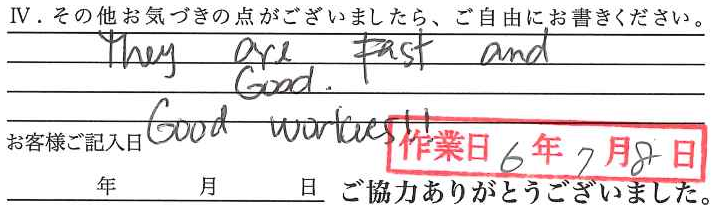 Ⅳ．その他お気づきの点がございましたら、ご自由にお書きください。
They are Fast and
Good.
Good workers!!
お客様ご記入日
作業日 6年7月8日
年 月 日 ご協力ありがとうございました。